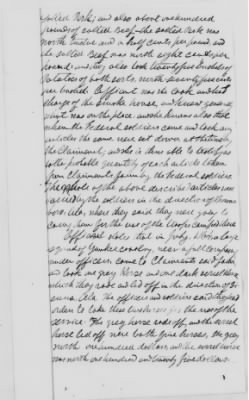 salted Pork; and also about one hundred
pounds of salted Beef. the salted Pork was
worth twelve and a half cents per pound and
the salted Beef was worth eight cents per
pound: and they also took twenty five bushels of
Potatoes of both sorts, worth seventy five cents
per bushel. Affiant was the cook and had
charge of the smoke house, and knew
what was on the place. and she knows also that
when the Federal soldiers came and took any
articles the same were set down at the time by
the Claimant; and she is thus able to testify as
to the probable quantity of each article taken
from Claimants farm by the Federal soldiers
The whole of the above described articles were
carried by the soldiers in the direction of
where they said they were going to
carry them for the use of the troops
Affiant states that in July, 1864, a large
squad of Yankee cavalry, near a full company,
under officers, came to Claimants said farm
and took one grey Horse and one dark sorrel Horse
which they rode and led off in the direction of
The officers and soldiers said they had
orders to take these two horses for the use of the
service. The grey horse rode off, and the sorrel
horse led off. were both fine horses, the grey
worth one hundred dollars, and the sorrel horse
was worth one hundred and twenty five dollars.